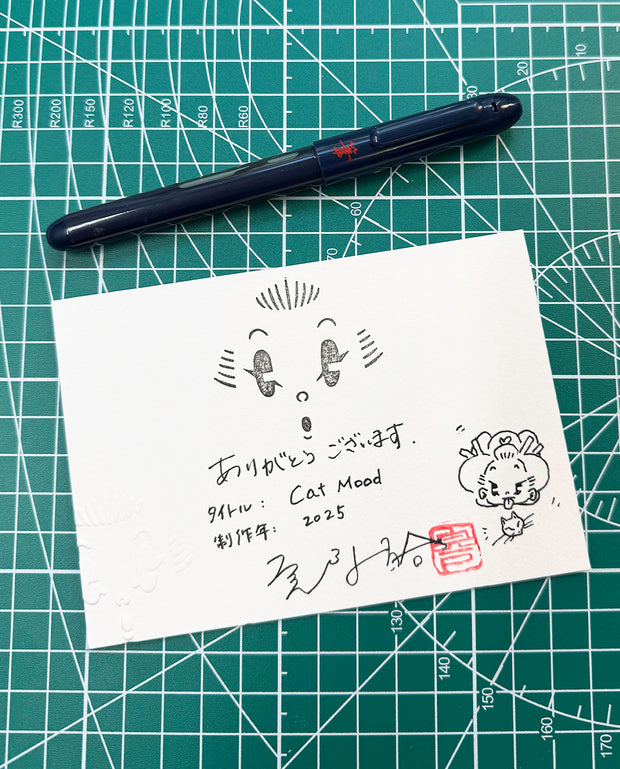 R300
R200
R150
R120
R100
R80
R60
10
20
30
60
ありがとうございます.
タイトル： Cat Mood
制作年： 2025
130
140
150
160
170